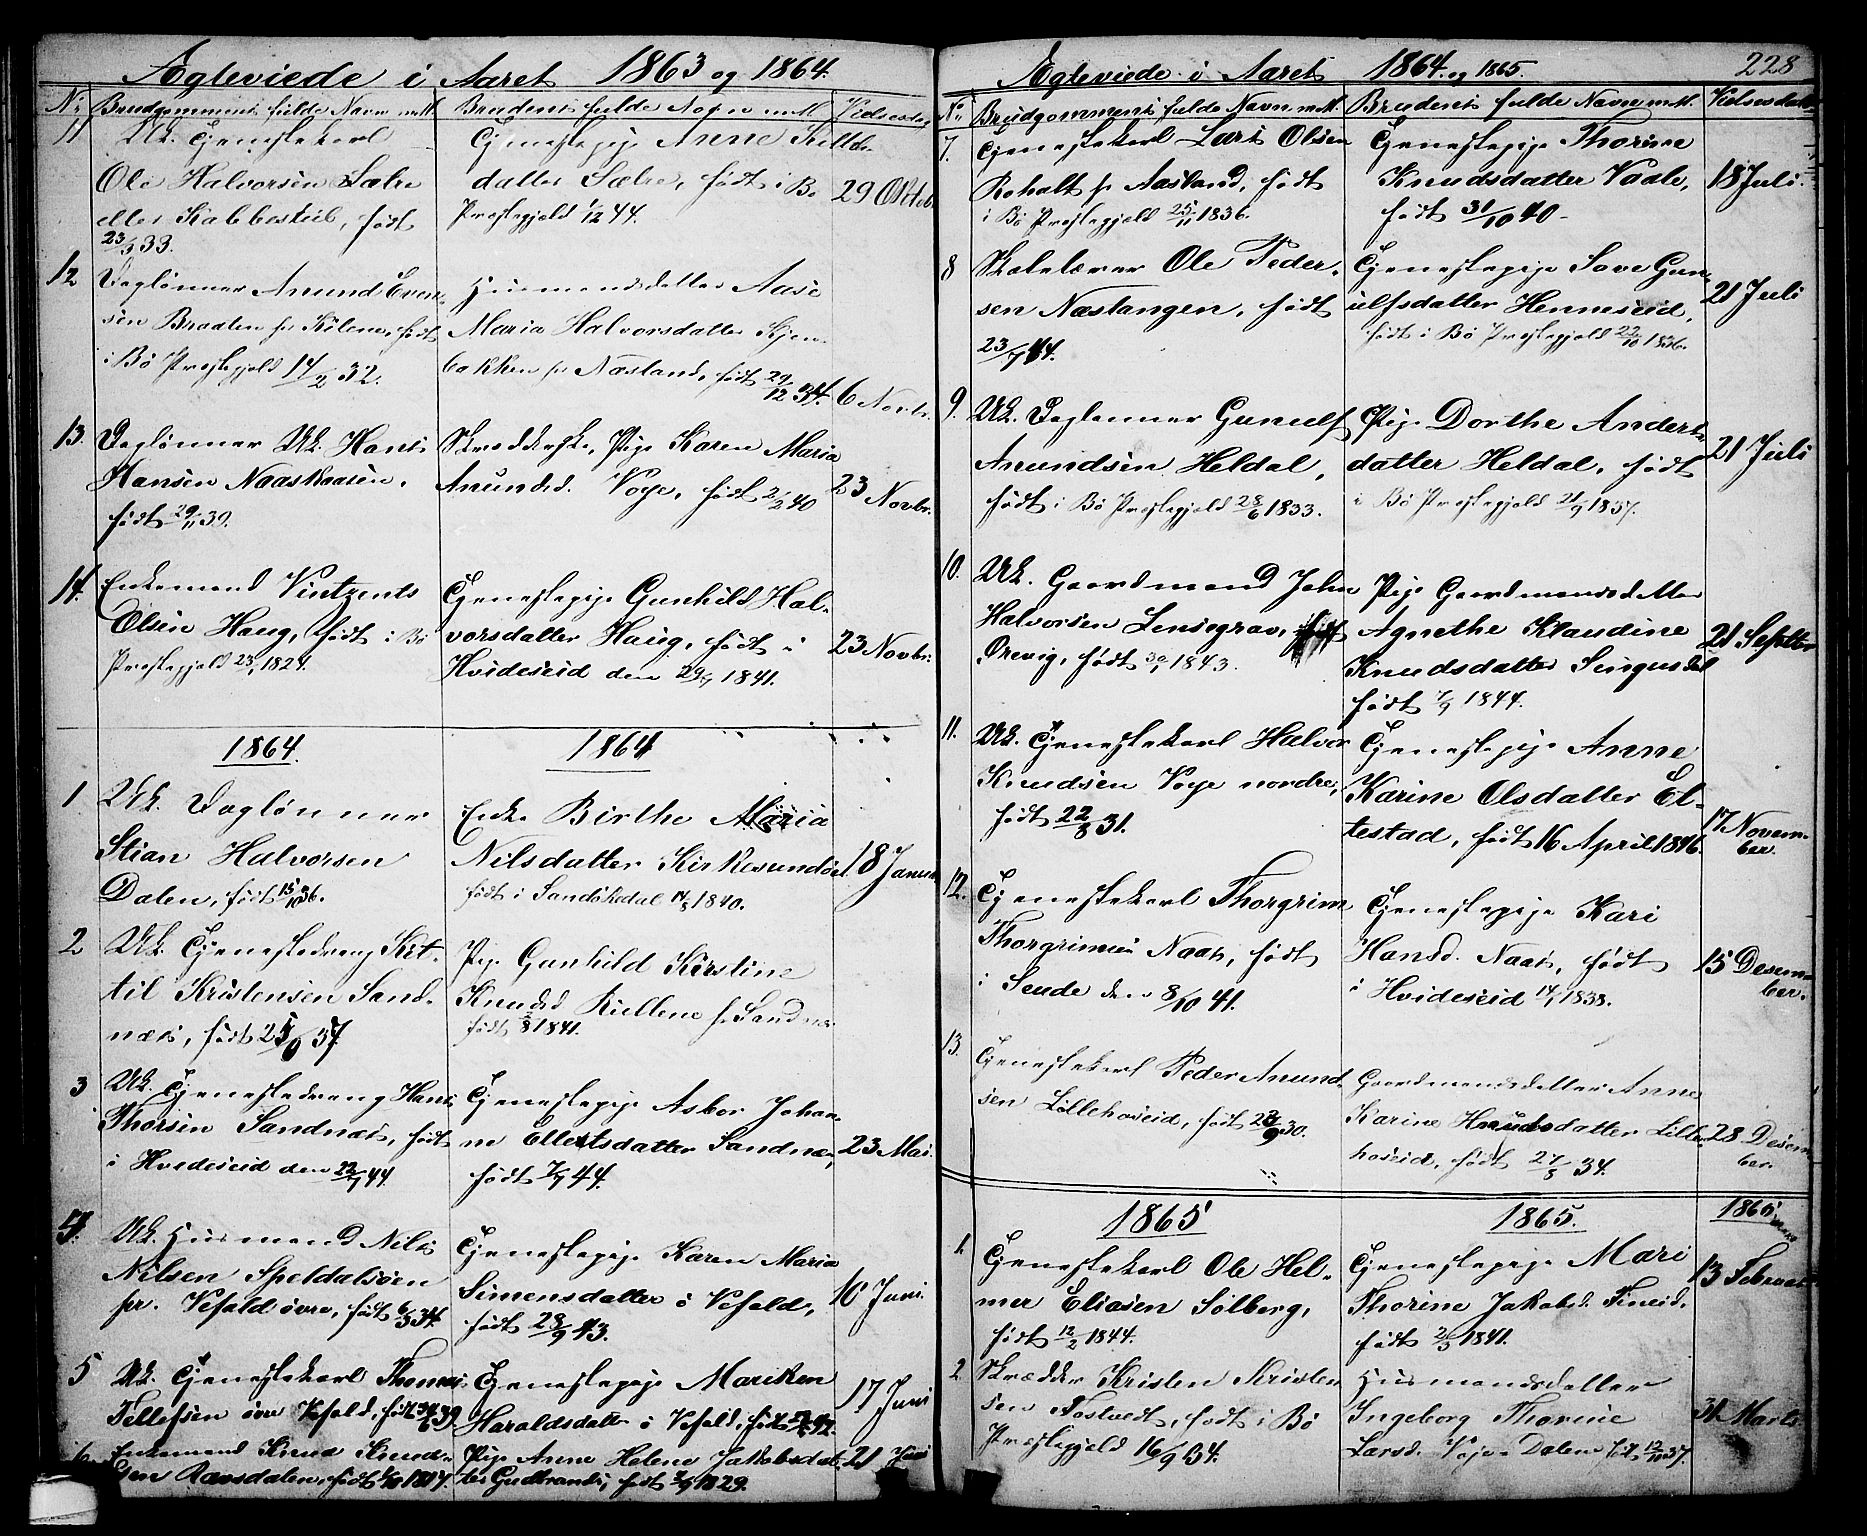 Ægteviede i Aaret 1863 og 1864.
No Brudgommens fulde Navn m.M. Brudens fulde Navn m.M. Vielsesdag
11 Uk. Tjenestekarl
Ole Halvorsen Sælre
eller Kabbesteib, født
23/3 33.
Tjenestepige Anne Kittils
datter Sælre, født i Bø
Præstegjeld 1/12 44.
29 Oktob.
12 Daglønner Anund Even-
sen Braaten pr Kilene, født
i Bø Præstegjeld 14/2 32.
Husmandsdatter Aase
Maria Halvorsdatter Kjen-
bakken pr Næsland, født 29/12 34.
6 Novbr.
13. Daglønner Uk. Hans
Hansen Naaskaasen,
født 29/11 39.
Skrædderske, Pige Karen Maria
Anundsd. Voje, født 2/2 40
23 Novbr.
14. Enkemand Vintzents
Olsen Haug, født i Bø
Præstegjeld 23/1 1824.
Tjenestepige Gunhild Hal-
vorsdatter Haug, født i
Hvideseid den 29/1 1841.
23 Novbr.
1864. 1864
1 Uk. Daglønner
Stian Halvorsen
Dalen, født 15/10 36.
Enke Birthe Maria
Nilsdatter Kirkesundøe
født i Sandøkedal 14/8 1840.
18 Januar
2 Uk. Tjenestedreng Ket-
til Kristensen Sand-
næs, født 25/9 37.
Pige Gunhild Kirstine
Knudsd Kiellene pr Sandnæs
født 2/8 1841.
3 Uk. Tjenestedreng Hans
Thorsen Sandnæs, født
i Hvideseid den 22/7 44.
Tjenestepige Asbor Johan-
ne Ellertsdatter Sandnæs,
født 7/7 44.
23 Mai.
4. Uk. Husmand Nils
Nilsen Speldalsøen
pr. Vefald øvre, født 6/3 34.
Tjenestepige Karen Maria
Simensdatter ø Vefald,
født 28/9 43.
10 Juni.
5 Uk. Tjenestekarl Thomas
Tellefsen øvre Vefald, født 39.
Tjenestepige Mariken
Haraldsdatter ø Vefald, født 42.
17 Juni
6 Enkemand Knud Knud-
sen Rævsdalen, født 1/10 1807.
Pige Anne Helene Jakobsdat-
ter Gudbrands, født 2/9 1829.
21 Juni
Ægteviede i Aaret 1864. og 1865. 228
No Brudgommens fulde Navn m.M. Brudens fulde Navn m.M. Vielsesdato
7. Tjenestekarl Lars Olsen
Rohalt pr Aasland, født
i Bø Præstegjeld 25/11 1836.
Tjenestepige Thorine
Knudsdatter Vaale,
født 31/10 40.
18 Juli.
8 Skolelærer Ole Peder-
sen Næstangen, født
23/7 44.
Tjenestepige Sove Gun-
ulfsdatter Henneseid,
født i Bø Præstegjeld 22/10 1836.
21 Juli
9. Uk. Daglønner Gunulf
Anundsen Heldal,
født i Bø Præstegjeld 28/6 1833.
Pige Dorthe Anders-
datter Heldal, født
i Bø Præstegjeld 21/9 1837.
21 Juli
10. Uk. Gaardmand John
Halvorsen Lensegrav,
Orevig, født 30/1 1843.
Pige Gaardmandsdatter
Agnethe Klaudine
Knudsdatter Sengusdal
født 7/9 1844.
21 Septbr
11. Uk. Tjenestekarl Halvor
Knudsen Voje nordre,
født 22/8 31.
Tjenestepige Anne
Karine Olsdatter El-
testad, født 16 April 1846.
17 Novem-
ber.
12. Tjenestekarl Thorgrim
Thorgrimsen Naas, født
i Seude den 8/10 41.
Tjenestepige Kari
Hansd. Naas, født
i Hvideseid 14/1 1838.
15 Desem-
ber.
13. Tjenestekarl Peder Anund-
sen Lillehoseid, født 23/9 30.
Gaardmandsdatter Anne
Karine Haraldsdatter Lille-
hoseid, født 27/8 34.
28 Desem-
ber.
1865 1865. 1865
1. Tjenestekarl Ole Hel-
mer Eliasen Solberg,
født 12/2 1844.
Tjenestepige Mari
Thorine Jakobsd. Fineid.
født 2/3 1841.
13 Februar
2 Skrædder Kristen Kristen-
sen Tostvedt, født i Bø
Præstegjeld 16/9 34.
Husmandsdatter
Ingeborg Thorine
Larsd. Voje Dalen født 12/10 37.
31 Marts